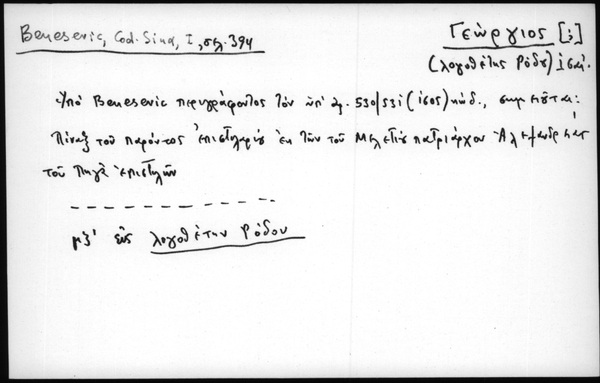 Benesevic, Cod. Sina, I, σελ. 394
Γεώργιος [;]
(λογοθέτης Ρόδου) ις´ αι.
Ὑπὸ Benesevic περιγράφοντος τὸν ὑπ' ἀρ. 530/531 (ισος) κώδ., σημειοῦται:
Πίναξ τοῦ παρόντος ἐπιστολαρίου ἐκ τῶν τοῦ Μελετίου πατριάρχου Ἀλεξανδρείας
τοῦ Πηγᾶ ἐπιστολῶν
μξ´ εἰς λογοθέτην Ρόδου